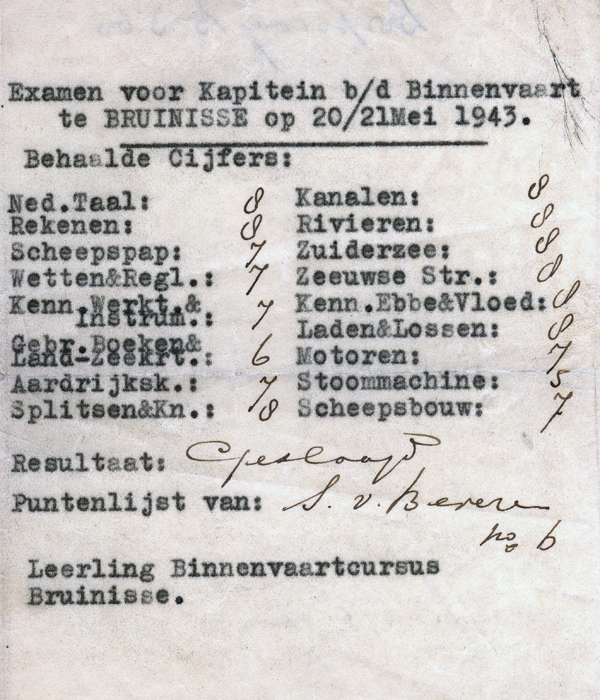 Examen voor Kapitein b/d Binnenvaart
te BRUINISSE op 20/21Mei 1943.
Behaalde Cijfers:
Ned.Taal: 8 Kanalen: 8
Rekenen: 8 Rivieren: 8
Scheepspap: 7 Zuiderzee: 8
Wetten&Regl.: 7 Zeeuwse Str.: 8
Kenn.Werkt.& Kenn.Ebbe&Vloed: 8
Instrum.: 7 Laden&Lossen: 8
Gebr.Boeken&
Land-Zeekrt.: 6 Motoren: 7
Aardrijksk.: 7 Stoommachine: 5
Splitsen&Kn.: 8 Scheepsbouw: 7
Resultaat: Geslaagd
Puntenlijst van: S. v. Beveren
no 6
Leerling Binnenvaartcursus
Bruinisse.